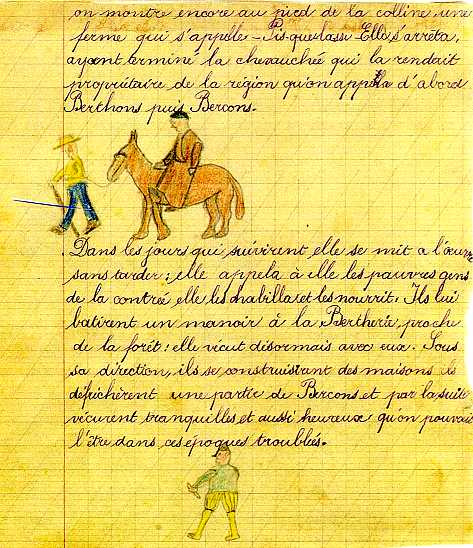 on montre encore au pied de la colline une
ferme qui s'appelle - Pis-que-lasse Elle s'arrêta,
ayant terminé la chevauchée qui la rendait
propriétaire de la région qu'on appela d'abord
Berthons puis Bercons.
Dans les jours qui suivirent elle se mit a l'œuvre
sans tarder ; elle appela à elle les pauvres gens
de la contreé elle les habilla et les nourrit. Ils lui
batirent un manoir à la Bertherie, proche
de la forêt : elle vécut désormais avec eux. Sous
sa direction, ils se construisirent des maisons ils
défrichèrent une partie de Bercons et par la suite
vécurent tranquilles et aussi heureux qu'on pouvait
l'être dans ces époques troublées.